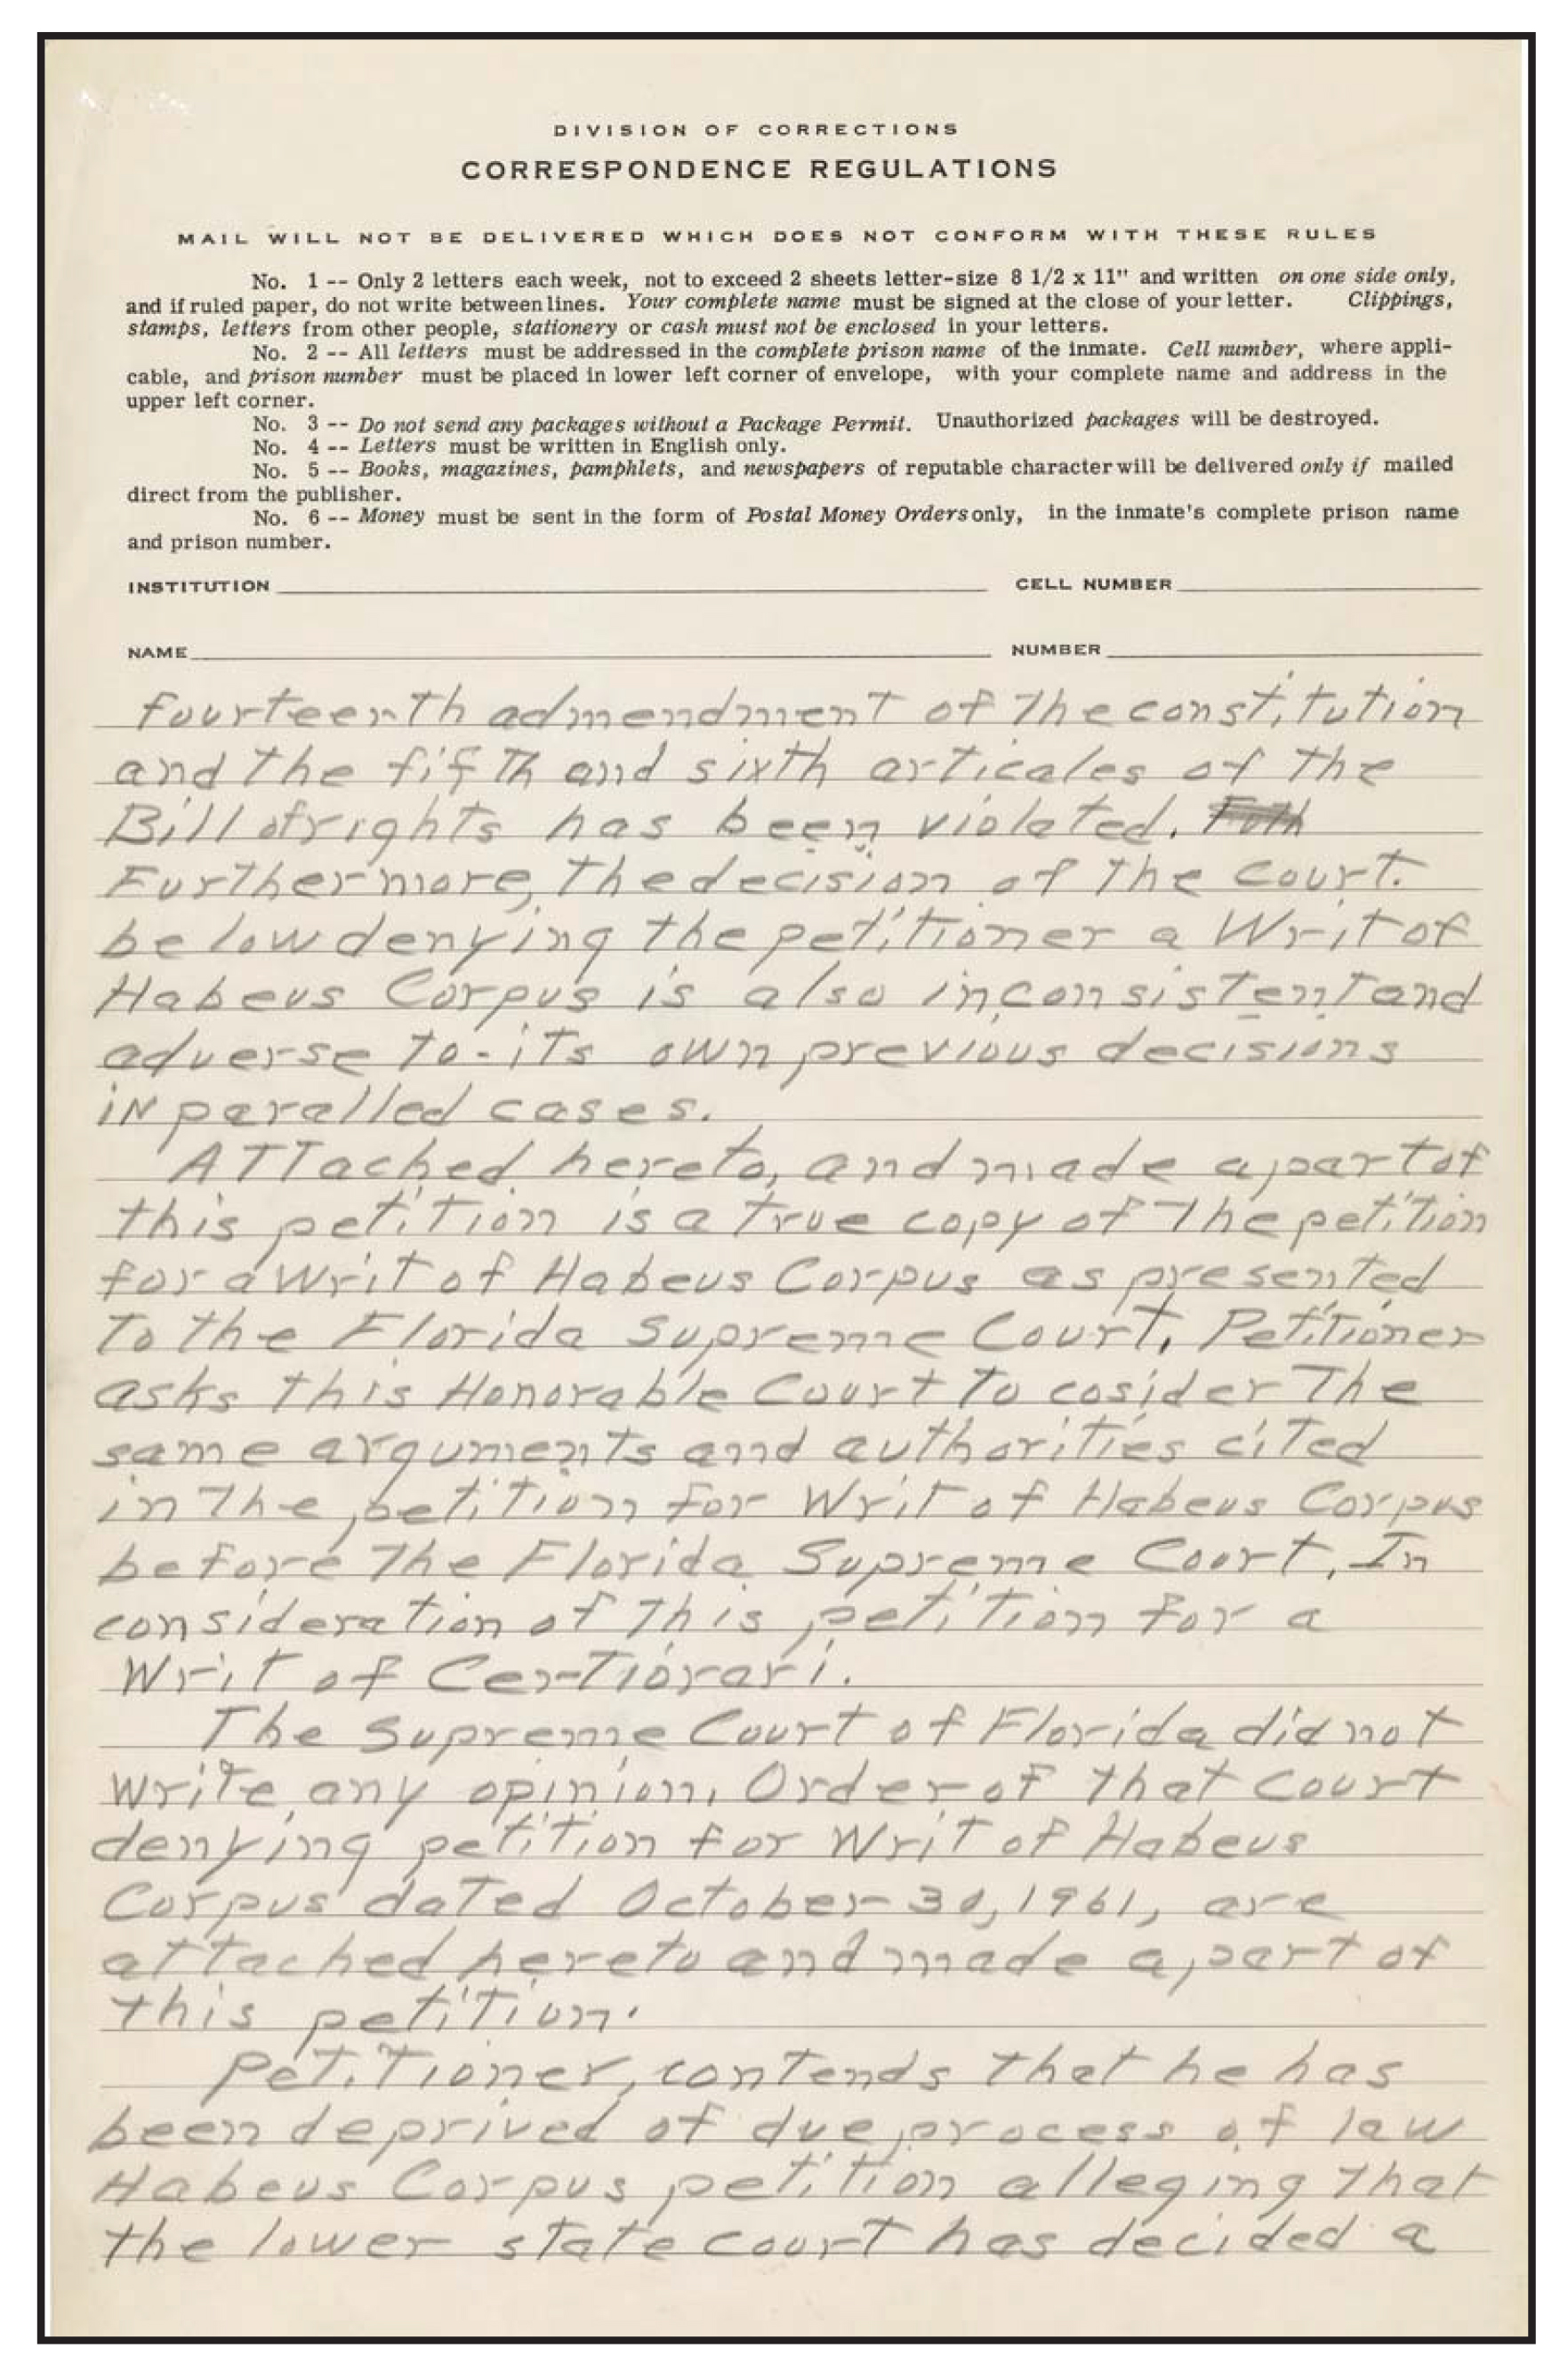 DIVISION OF CORRECTIONS
CORRESPONDENCE REGULATIONS
MAIL WILL NOT BE DELIVERED WHICH DOES NOT CONFORM WITH THESE RULES
No. 1 -- Only 2 letters each week, not to exceed 2 sheets letter-size 8 1/2 x 11" and written on one side only,
and if ruled paper, do not write between lines. Your complete name must be signed at the close of your letter. Clippings,
stamps, letters from other people, stationery or cash must not be enclosed in your letters.
No. 2 -- All letters must be addressed in the complete prison name of the inmate. Cell number, where appli-
cable, and prison number must be placed in lower left corner of envelope, with your complete name and address in the
upper left corner.
No. 3 -- Do not send any packages without a Package Permit. Unauthorized packages will be destroyed.
No. 4 -- Letters must be written in English only.
No. 5 -- Books, magazines, pamphlets, and newspapers of reputable character will be delivered only if mailed
direct from the publisher.
No. 6 -- Money must be sent in the form of Postal Money Orders only, in the inmate's complete prison name
and prison number.
INSTITUTION CELL NUMBER
NAME NUMBER
fourteenth admendment of the constitution
and the fifth and sixth articales of the
Bill of rights has been violated.
Furthermore, the decision of the court.
below denying the petitioner a Writ of
Habeus Corpus is also inconsistent and
adverse to-its own previous decisions
in paralled cases.
Attached hereto, and made a part of
this petition is a true copy of the petition
for a Writ of Habeus Corpus as presented
to the Florida Supreme Court. Petitioner
asks this Honorable Court to cosider the
same arguments and authorities cited
in the petition for Writ of Habeus Corpus
before the Florida Supreme Court. In
consideration of this petition for a
Writ of Certiorari.
The Supreme Court of Florida did not
write any opinion. Order of that court
denying petition for Writ of Habeus
Corpus dated October 30, 1961, are
attached hereto and made a part of
this petition.
Petitioner, contends that he has
been deprived of due process of law
Habeus Corpus petition alleging that
the lower state court has decided a